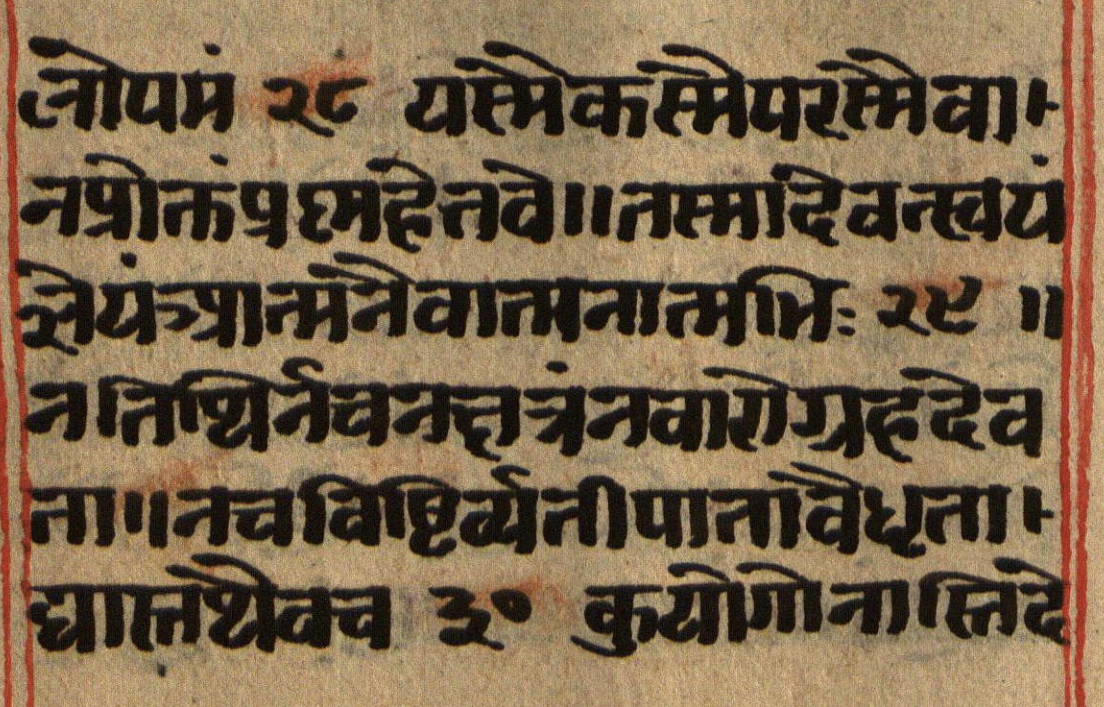 त्रोपमं २८ यस्मैकस्मैपरस्मैवा।-
नप्रोक्तंप्रश्नहेतवे॥तस्मादेवत्स्वयं
ज्ञेयंप्राज्ञात्मनैवात्मनात्मभिः २९ ॥
नतिथिर्नचनक्षत्रंनवारोग्रहदेव
ता॥नचविष्टिर्व्यतीपातावैधृता।-
द्यास्तथैवच ३० कुयोगोनास्तिदे